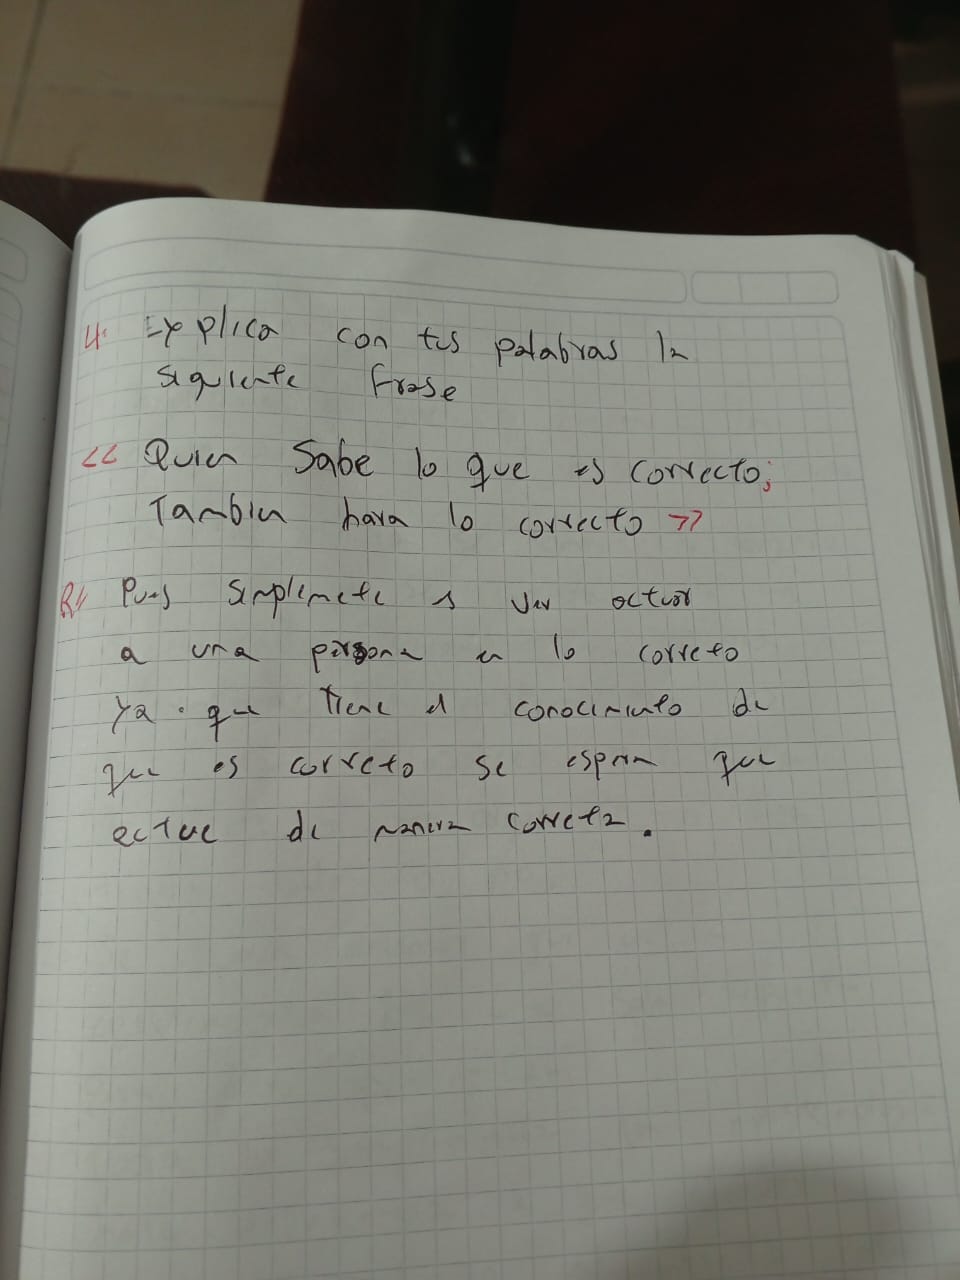 4. Explica con tus palabras la
siguiente frase
<< Quien Sabe lo que es correcto;
Tambien hara lo correcto >>
R// Pues simplemete es ver actuar
a una persona en lo correto
ya que tiene el conocimiento de
que es correto se espera que
actue de manera correta.